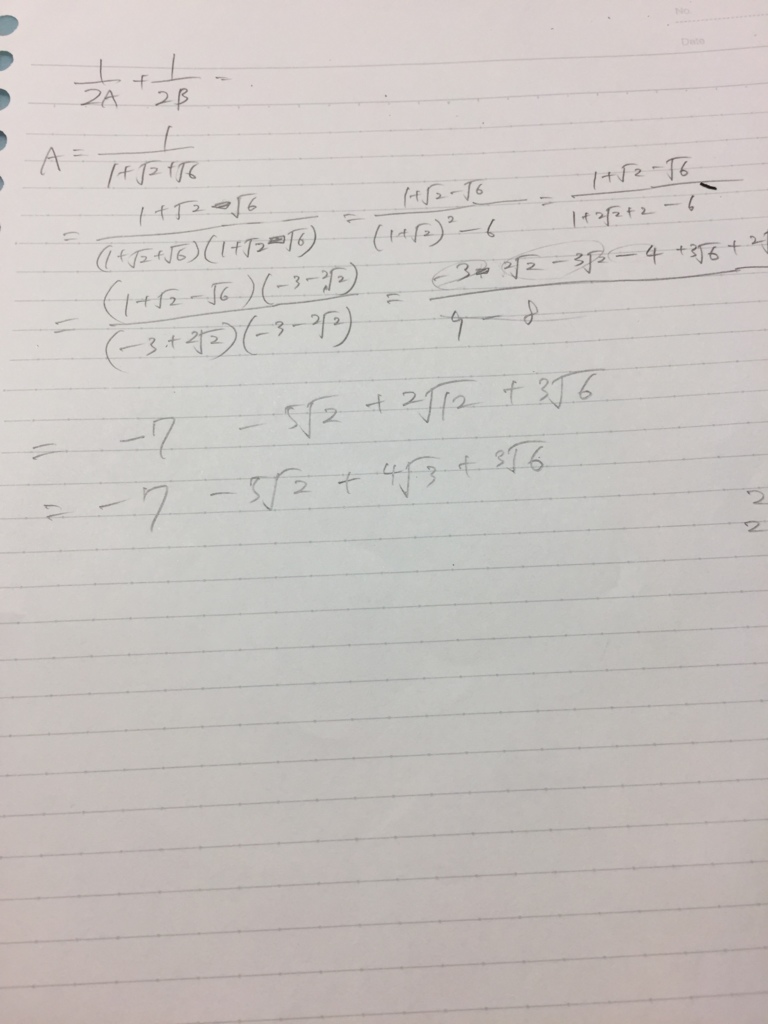 No.
Date
1/2A + 1/2B =
A = 1/(1+√2+√6)
= (1+√2-√6)/((1+√2+√6)(1+√2-√6)) = (1+√2-√6)/((1+√2)²-6) = (1+√2-√6)/(1+2√2+2-6)
= ((1+√2-√6)(-3-2√2))/((-3+2√2)(-3-2√2)) = (-3-2√2-3√2-4+3√6+2√)/(9-8)
= -7 -5√2 + 2√12 + 3√6
= -7 -5√2 + 4√3 + 3√6
2
2